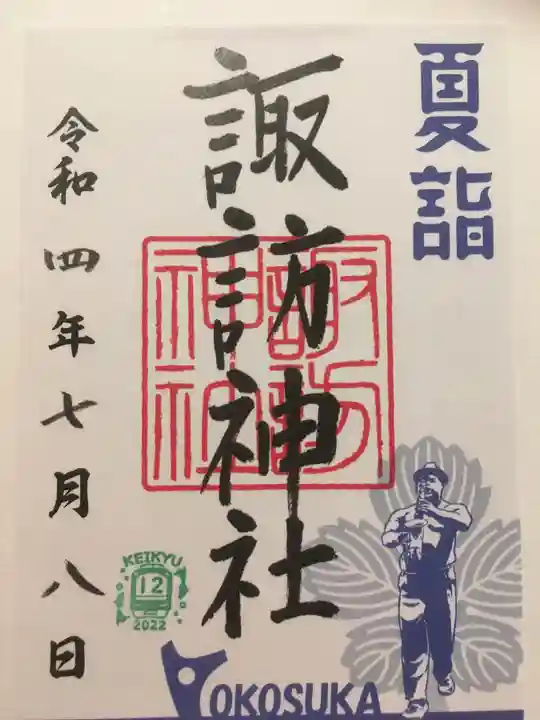 夏詣
諏訪神社
諏訪
神社
令和四年七月八日
KEIKYU
12
2022
YOKOSUKA